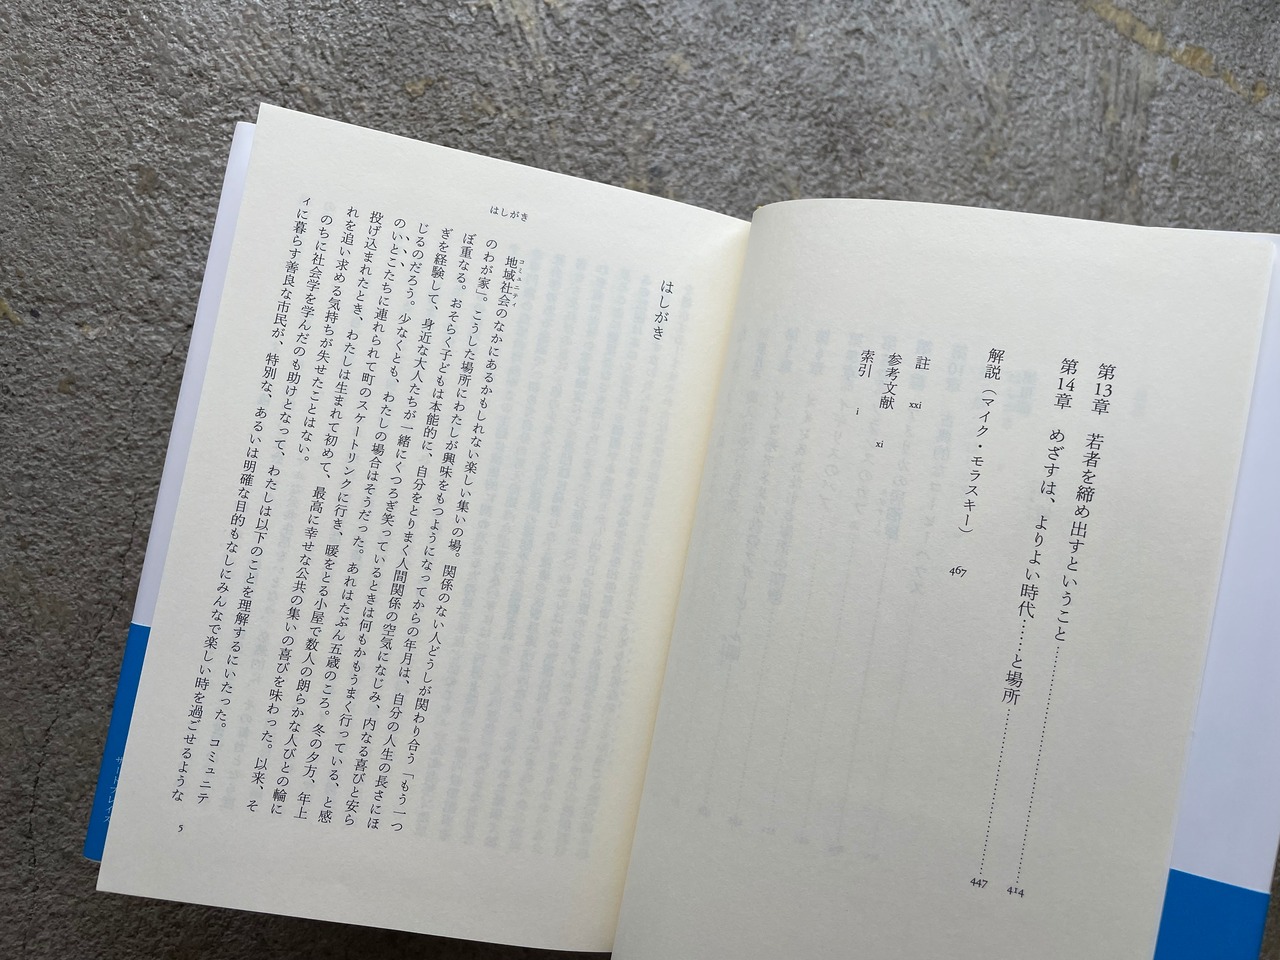 第13章　若者を締め出すということ……414
第14章　めざすは、よりよい時代……と場所……447
解説（マイク・モラスキー）　467
註　xxi
参考文献　xi
索引　i
はしがき
はしがき
地域社会のなかにあるかもしれない楽しい集いの場。関係のない人どうしが関わり合う「もう一つ
コミュニティ
のわが家」。こうした場所にわたしが興味をもつようになってからの年月は、自分の人生の長さにほ
ぼ重なる。おそらく子どもは本能的に、自分をとりまく人間関係の空気になじみ、内なる喜びと安ら
ぎを経験して、身近な大人たちが一緒にくつろぎ笑っているときは何もかもうまく行っている、と感
じるのだろう。少なくとも、わたしの場合はそうだった。あれはたぶん五歳のころ。冬の夕方、年上
のいとこたちに連れられて町のスケートリンクに行き、暖をとる小屋で数人の朗らかな人びとの輪に
投げ込まれたとき、わたしは生まれて初めて、最高に幸せな公共の集いの喜びを味わった。以来、そ
れを追い求める気持ちが失せたことはない。
のちに社会学を学んだのも助けとなって、わたしは以下のことを理解するにいたった。コミュニテ
ィに暮らす善良な市民が、特別な、あるいは明確な目的もなしにみんなで楽しい時を過ごせるような
5
サードプレイス